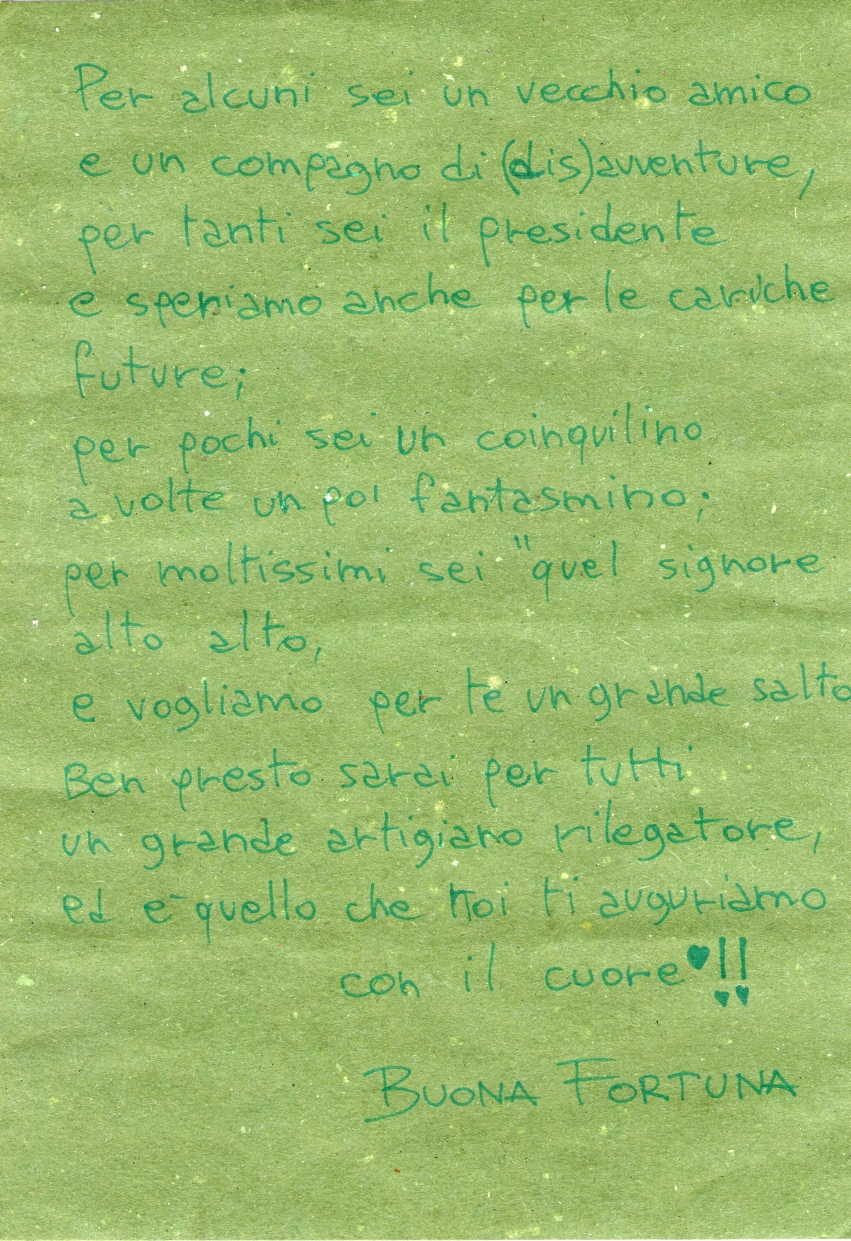 Per alcuni sei un vecchio amico
e un compagno di (dis)avventure,
per tanti sei il presidente
e speriamo anche per le cariche
future;
per pochi sei un coinquilino
a volte un po' fantasmino;
per moltissimi sei "quel signore
alto alto,
e vogliamo per te un grande salto
Ben presto sarai per tutti
un grande artigiano rilegatore,
ed è quello che noi ti auguriamo
con il cuore♥!!
BUONA FORTUNA